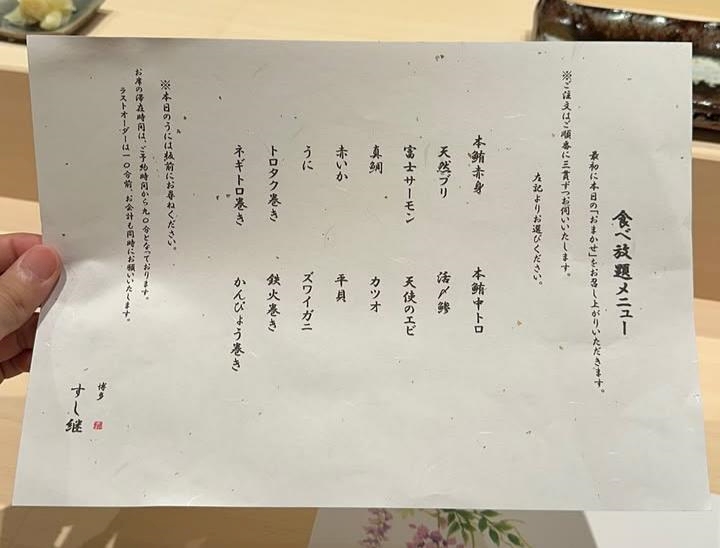 食べ放題メニュー
最初に本日の「おまかせ」をお召し上がりいただきます。
※ご注文はご順番に三貫ずつお伺いいたします。
左記よりお選びください。
本鮪赤身　本鮪中トロ
天然ブリ　活〆鯵
富士サーモン　天使のエビ
真鯛　カツオ
赤いか　平貝
うに　ズワイガニ
トロタク巻き　鉄火巻き
ネギトロ巻き　かんぴょう巻き
※本日のうには板前にお尋ねください。
お席の滞在時間は、ご予約時間から九〇分となっております。
ラストオーダーは一〇分前、お会計も同時にお願いいたします。
博多
すし継